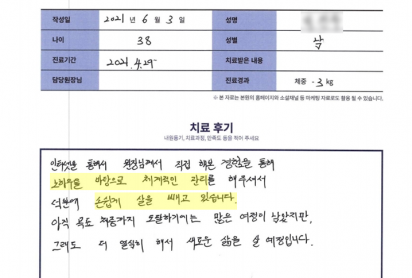 작성일 2021 년 6 월 3 일 성명
나이 38 성별 남
진료기간 2021. 4.29~ 치료받은 내용
담당원장님 진료경과 체중 -3kg
※ 본 자료는 본원의 홈페이지와 소셜채널 등 마케팅 자료로도 활용 될 수 있습니다.
치료 후기
내원동기, 치료과정, 만족도 등을 적어 주세요
인터넷을 통해서 원장님께서 직접 해본 경험을 통해
노하우를 바탕으로 체계적인 관리를 해주셔서
손쉽게 살을 빼고 있습니다.
아직 목표 체중까지 도달하기에는 많은 여정이 남았지만,
그래도 더 열심히 해서 새로운 삶을 살 예정입니다.